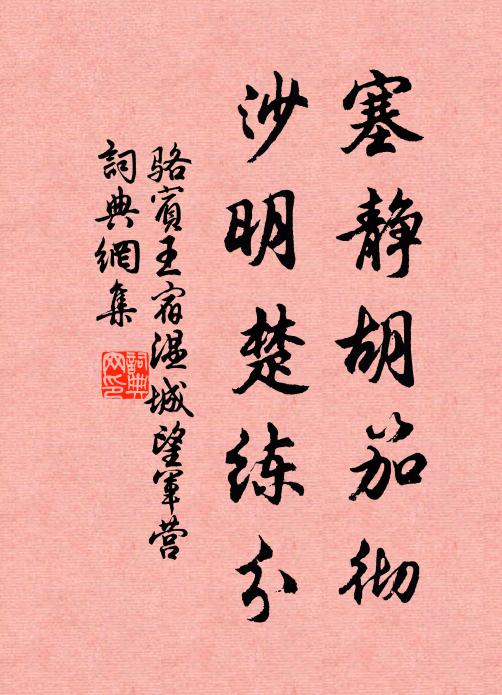 塞静胡笳彻
沙明楚练分
骆宾王宿温城望军营
詞典網集
詞典
网印